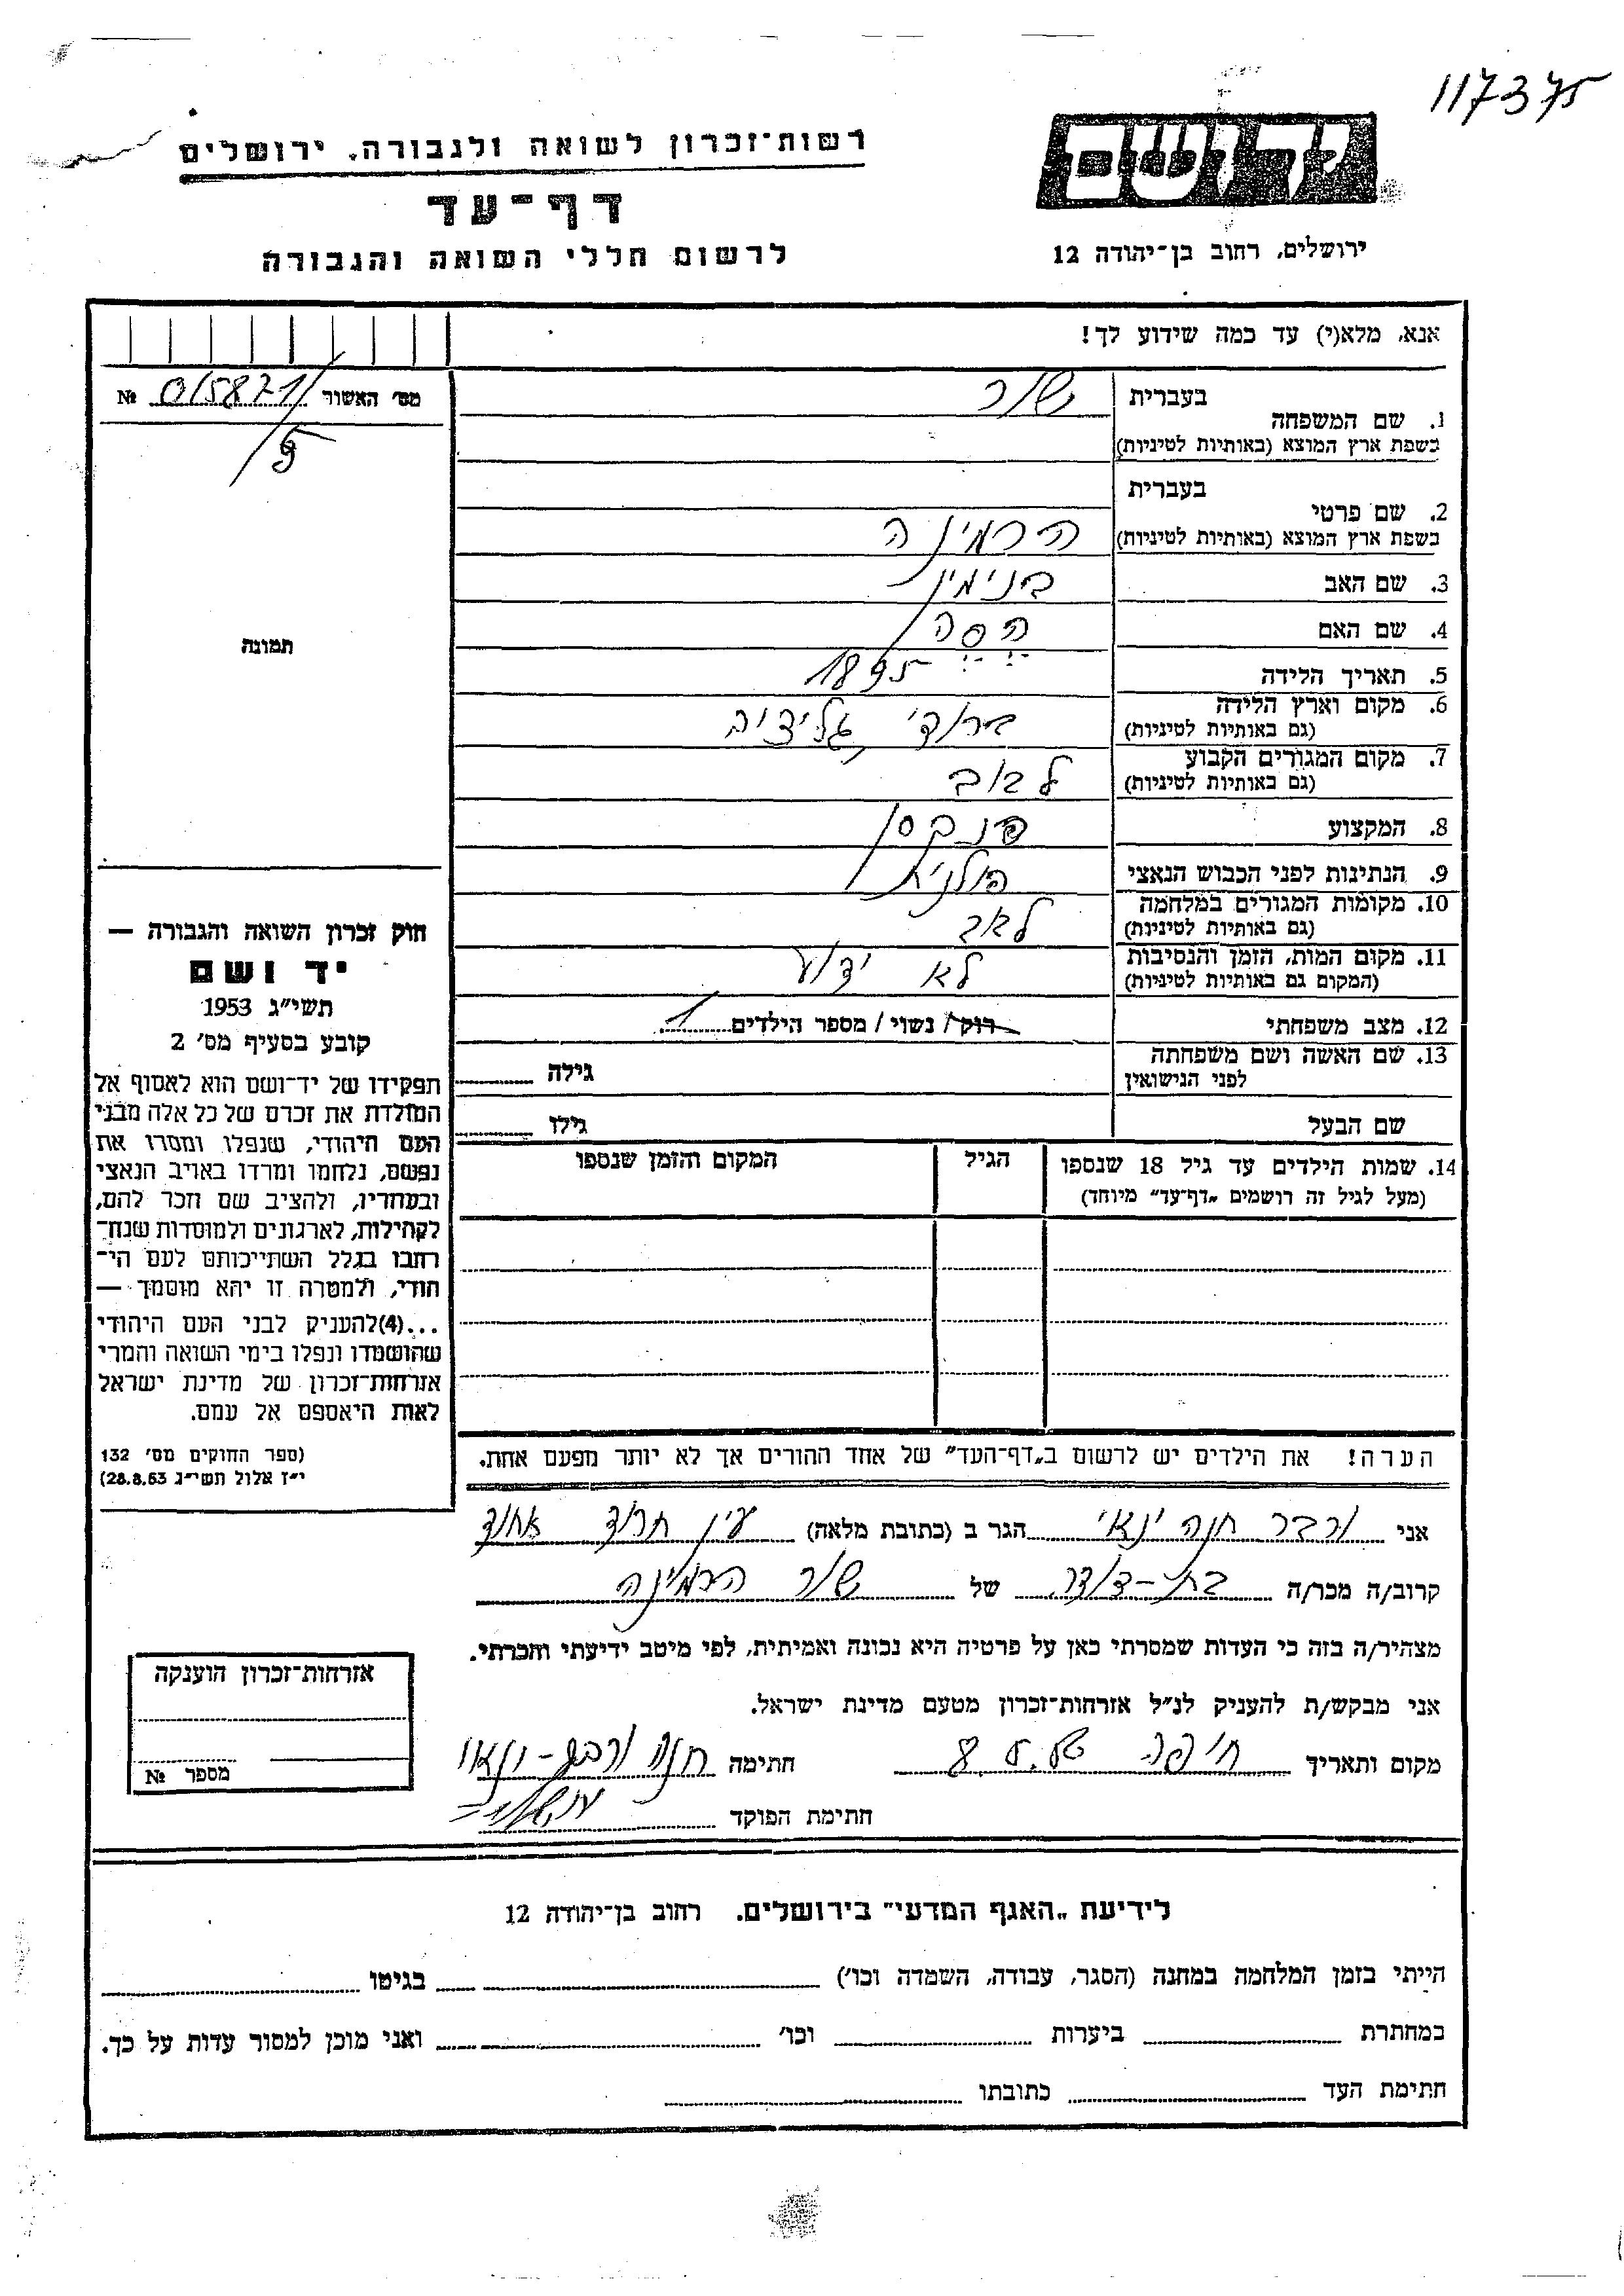 117375
יד ושם
רשות־זכרון לשואה ולגבורה, ירושלים
דף־עד
לרשום חללי השואה והגבורה
ירושלים, רחוב בן־יהודה 12
אנא, מלא(י) עד כמה שידוע לך!
מס׳ האשור 015871 №
5
1. שם המשפחה
בעברית שור
בשפת ארץ המוצא (באותיות לטיניות)
2. שם פרטי
בעברית
בשפת ארץ המוצא (באותיות לטיניות) הרמינה
3. שם האב בנימין
4. שם האם הסה
5. תאריך הלידה 1895
6. מקום וארץ הלידה ברודי גליציה
(גם באותיות לטיניות)
7. מקום המגורים הקבוע לבוב
(גם באותיות לטיניות)
8. המקצוע
9. הנתינות לפני הכבוש הנאצי פולניה
10. מקומות המגורים במלחמה לבוב
(גם באותיות לטיניות)
11. מקום המות, הזמן והנסיבות לא ידוע
(המקום גם באותיות לטיניות)
12. מצב משפחתי רוק / נשוי / מספר הילדים 1
13. שם האשה ושם משפחתה גילה
לפני הנישואין
שם הבעל גילו
14. שמות הילדים עד גיל 18 שנספו הגיל המקום והזמן שנספו
(מעל לגיל זה רושמים „דף־עד״ מיוחד)
הערה! את הילדים יש לרשום ב„דף־העד״ של אחד ההורים אך לא יותר מפעם אחת.
תמונה
חוק זכרון השואה והגבורה —
יד ושם
תשי״ג 1953
קובע בסעיף מס׳ 2
תפקידו של יד־ושם הוא לאסוף אל
המולדת את זכרם של כל אלה מבני
העם היהודי, שנפלו ומסרו את
נפשם, נלחמו ומרדו באויב הנאצי
ובעוזריו, ולהציב שם וזכר להם,
לקהילות, לארגונים ולמוסדות שנח־
רבו בגלל השתייכותם לעם הי־
הודי, ולמטרה זו יהא מוסמך —
...(4)להעניק לבני העם היהודי
שהושמדו ונפלו בימי השואה והמרי
אזרחות־זכרון של מדינת ישראל
לאות היאספם אל עמם.
(ספר החוקים מס׳ 132
י״ז אלול תשי״ג 28.8.53)
אני ורבר חנה ינאי הגר ב (כתובת מלאה) עין חרוד אחוד
קרוב/ה מכר/ה בת-דודה של שור הרמינה
מצהיר/ה בזה כי העדות שמסרתי כאן על פרטיה היא נכונה ואמיתית, לפי מיטב ידיעתי והכרתי.
אני מבקש/ת להעניק לנ״ל אזרחות־זכרון מטעם מדינת ישראל.
מקום ותאריך חיפה חתימה חנה ורבר-ינאי
חתימת הפוקד
אזרחות־זכרון הוענקה
מספר №
לידיעת „האגף המדעי״ בירושלים. רחוב בן־יהודה 12
הייתי בזמן המלחמה במחנה (הסגר, עבודה, השמדה וכו׳) בגיטו
במחתרת ביערות וכו׳ ואני מוכן למסור עדות על כך.
חתימת העד כתובתו